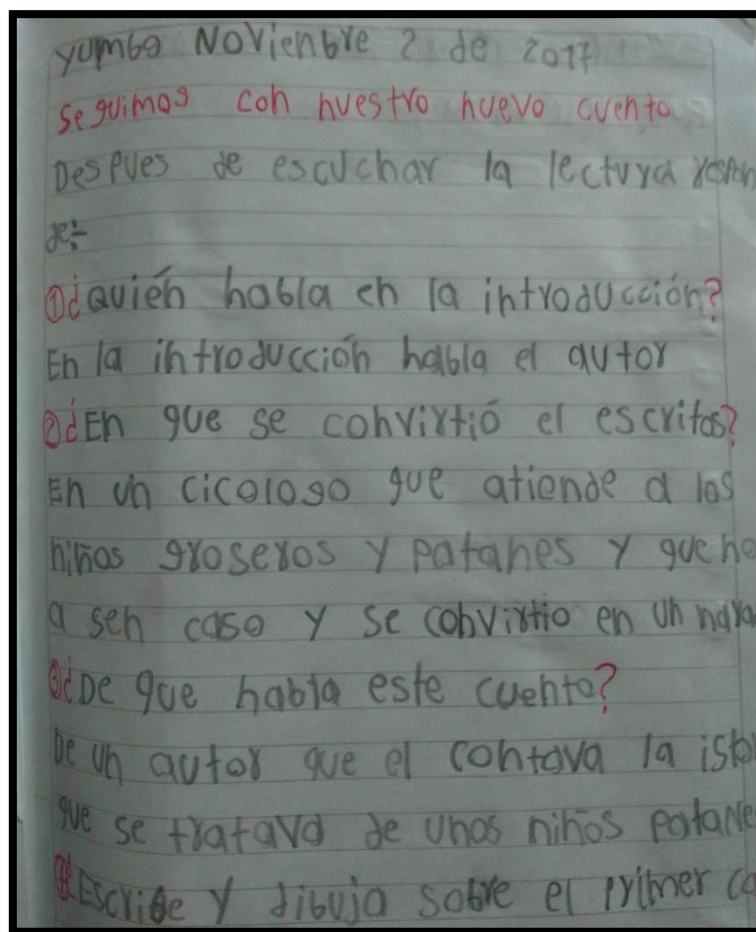 Yumbo Novienbre 2 de 2017
Seguimos con nuestro nuevo cuento
Despues de escuchar la lectura respon
de:
① ¿Quién habla en la introducción?
En la introducción habla el autor
② ¿En que se convirtió el escritos?
En un cicologo que atiende a los
niños groseros y patanes y que no
a sen caso y se convirtio en un nara
③ ¿De que habla este cuento?
De un autor que el contava la istor
que se tratava de unos niños patane
④ Escribe y dibuja sobre el primer ca